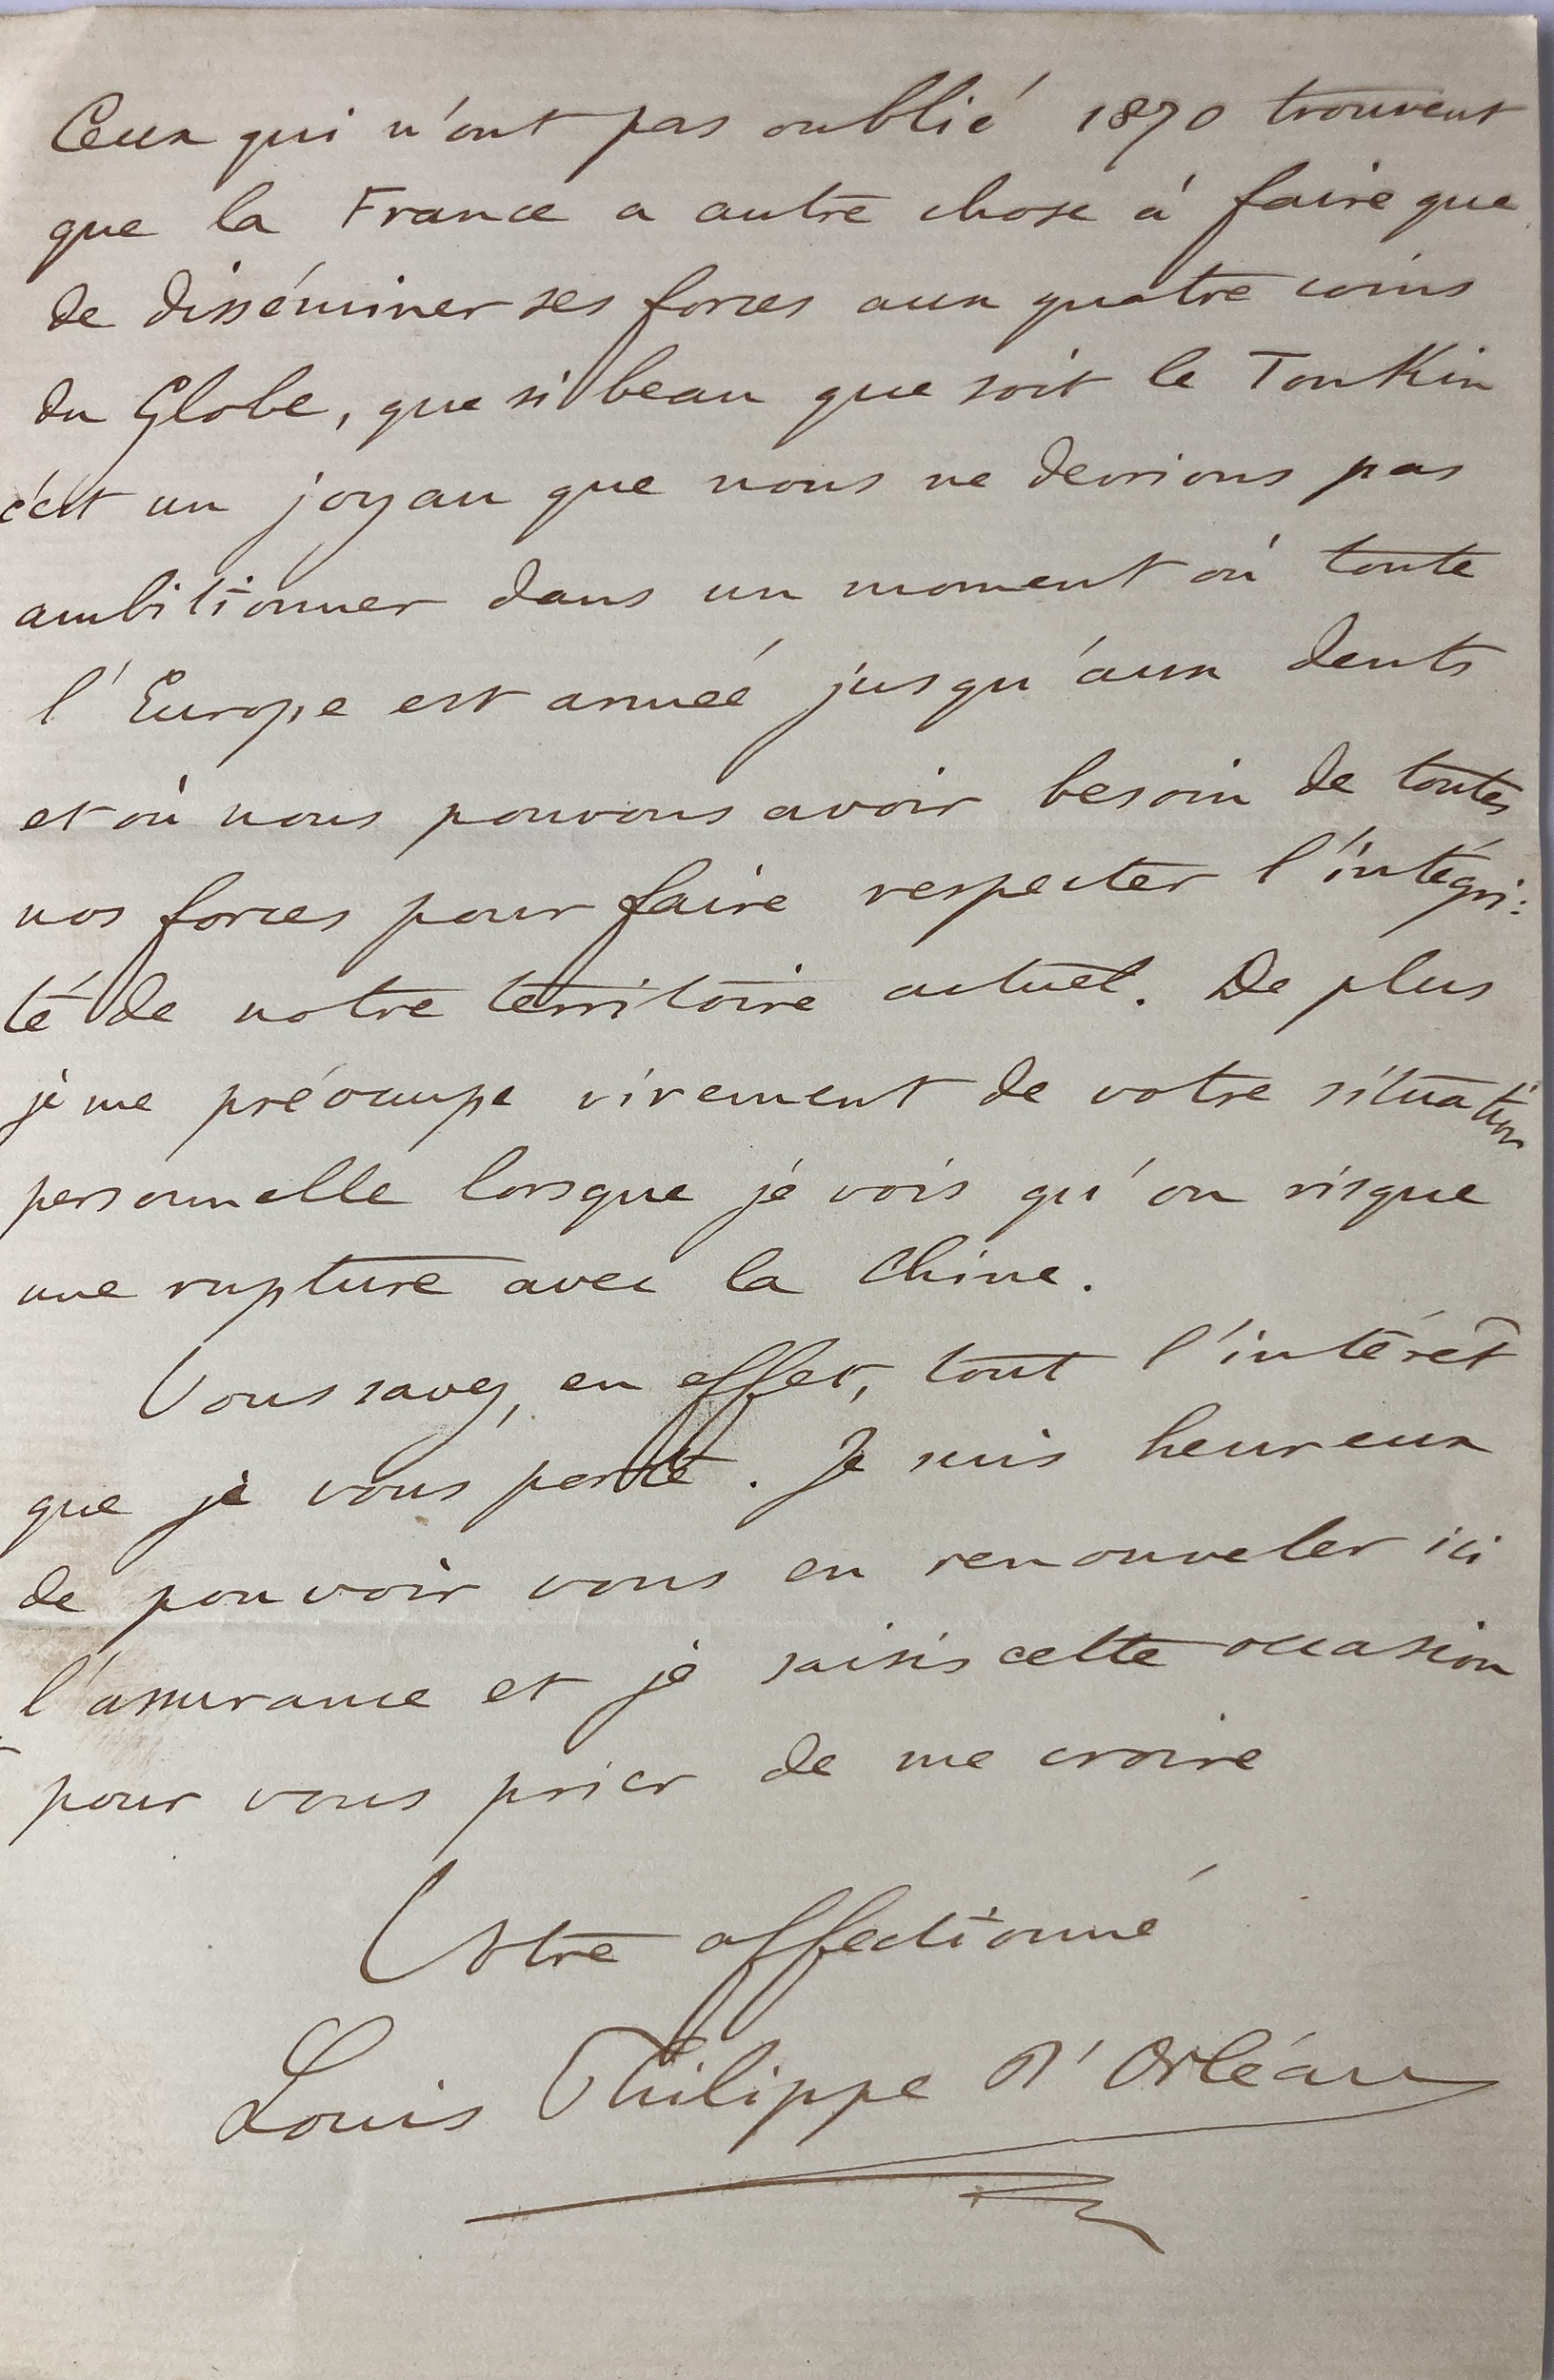 Ceux qui n'ont pas oublié 1870 trouvent
que la France a autre chose à faire que
de disséminer ses forces aux quatre coins
du Globe, que si beau que soit le TonKin
c'est un joyau que nous ne devrions pas
ambitionner dans un moment où toute
l'Europe est armée jusqu'aux dents
et où nous pouvons avoir besoin de toutes
nos forces pour faire respecter l'intégri:
té de notre territoire actuel. De plus
je me préoccupe vivement de votre situation
personnelle lorsque je vois qu'on risque
une rupture avec la Chine.
Vous savez, en effet, tout l'intérêt
que je vous porte. Je suis heureux
de pouvoir vous en renouveler ici
l'assurance et je saisis cette occasion
pour vous prier de me croire
Votre affectionné
Louis Philippe d'Orléans